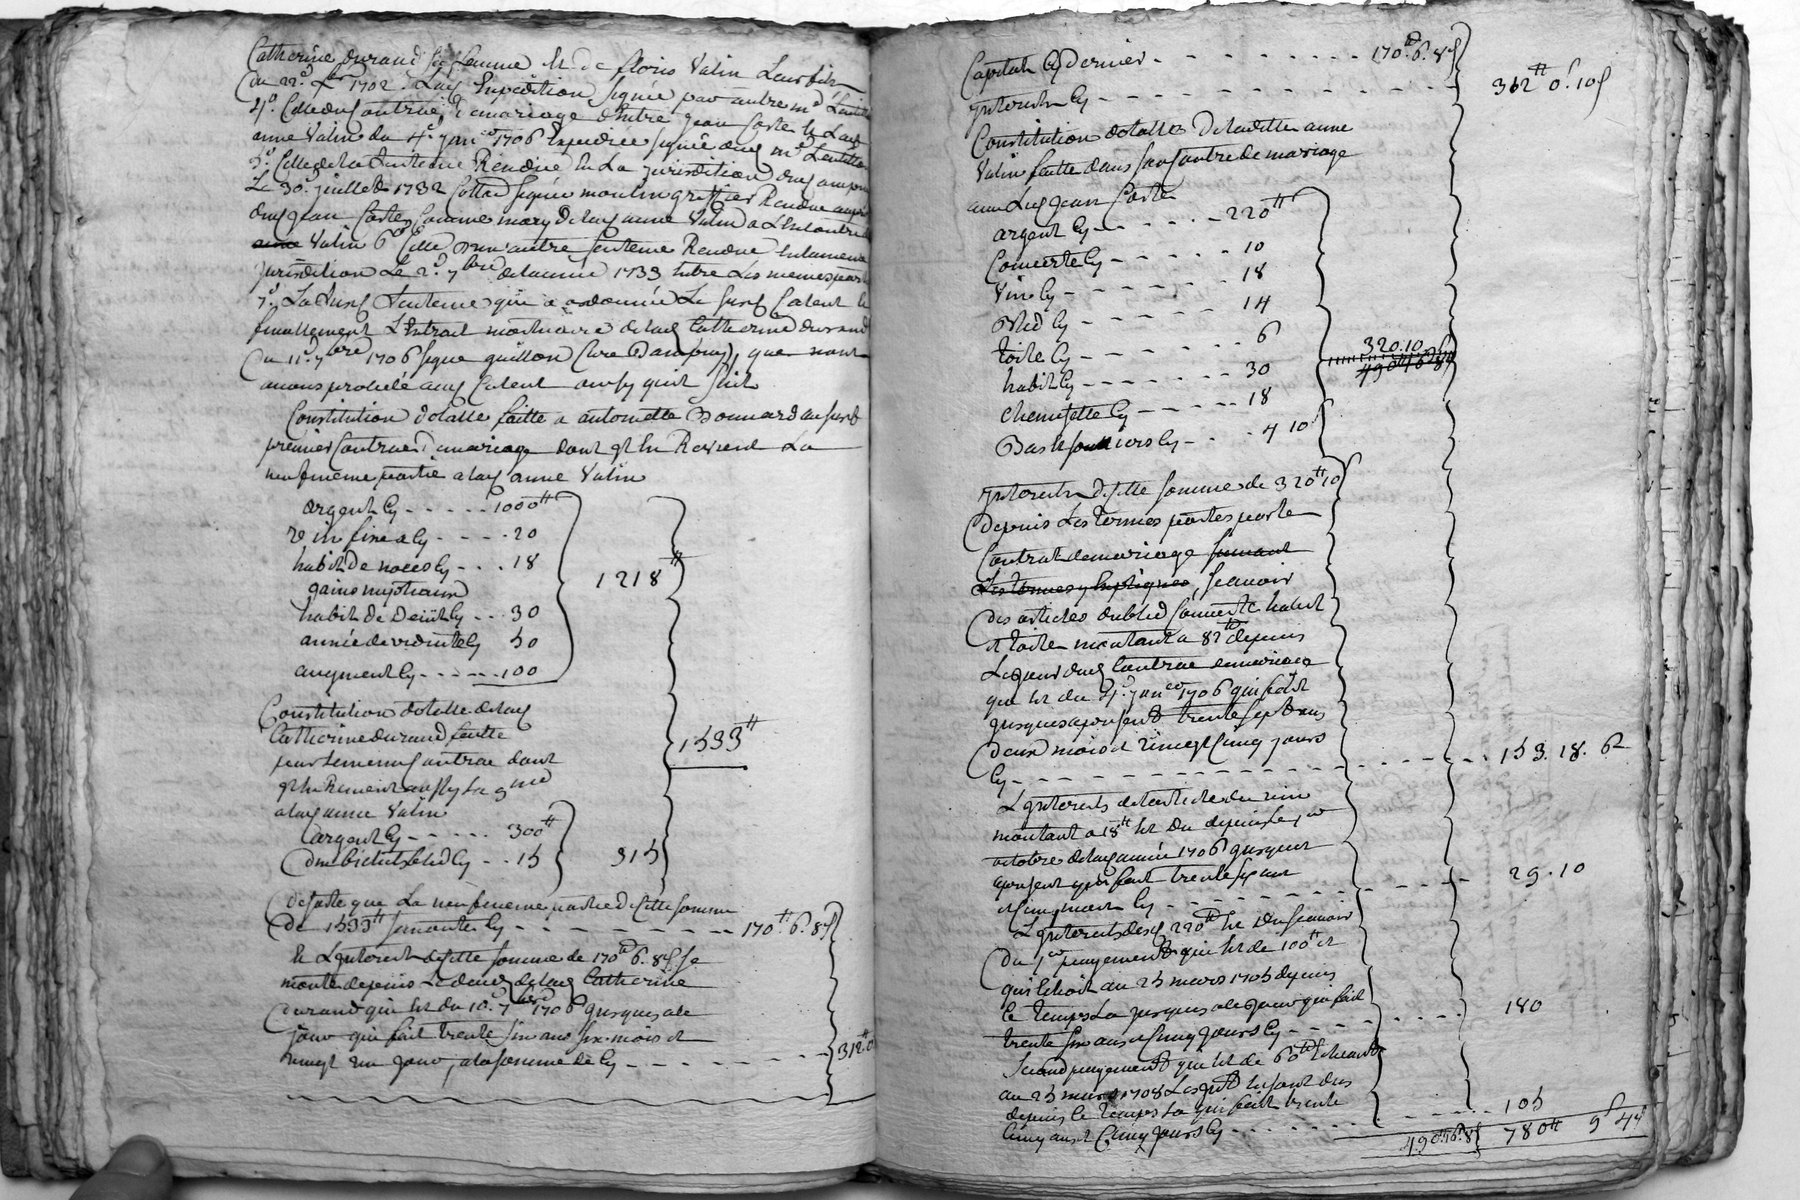 Catherine durand femme et de floris Valin
du 22e 1702. Expedition signée par autre me
4o. Celle du contract de mariage d'Entre jean Coste et
anne Valin du 4e janer 1706 Expediée signée dud me
5o. Celle de la Sentence Rendue En La jurisdition
Le 30e juillet 1732 signée moulin greffier Rendue
dud jean Coste Comme mary de lad anne Valin a L'Encontre
Valin 6o Celle d'une autre Sentence Rendue En la meme
jurisdition Le 2e 7bre de la année 1733 Entre Les memes
7o. La Susd Sentence qui a ordonnée Le Susd Calcul Et
finallement L'Extrait mortuaire de lad Catherine durand
du 11e 7bre 1706 signé guillon Cure que nous
avons procedé aud Calcul ainsy quil suit
Constitution dotalle faitte a antoinette Bonnard au susd
premier Contract de mariage dont il En Revient La
neufvieme partie a lad anne Valin
argent Cy - - - - - 1000tt
Cy - - - - 20
habit de noces Cy - - . 18
gains nuptiaux
habit de Deüil Cy - - . 30
année de viduité Cy 50
augment Cy - - - - - 100
1218tt
Constitution dotalle de lad
Catherine durand faitte
par le meme Contract dont
il En Revient aussy La 9me
a lad anne Valin
argent Cy - - - - - 300tt
bled Cy - - 15
315
1533tt
De sorte que La neufvieme partie de Cette somme
De 1533tt se monte Cy - - - - - - - 170tt 6s 8d
Et L'Interest de Cette somme de 170tt 6s 8d se
monte depuis Le deces de lad Catherine
durand qui Est du 10e 7bre 1706 jusques a ce
jour qui fait trente six ans six mois et
vingt un jour, a la somme de Cy - - - - - - - 312tt 0
Capital Cy Dernier - - - - - - - - - 170tt 6s 8d
Interest Cy - - - - - - - - - - - - - - - - 312tt 0s 10d
Constitution dotalle De laditte anne
Valin faitte dans son Contract de mariage
avec Led jean Coste
argent Cy - - - - - - 220tt
Couverte Cy - - - - - - 10
Vin Cy - - - - - - - - 18
Bled Cy - - - - - - - 14
toile Cy - - - - - - - - 6
habit Cy - - - - - - - 30
chemisette Cy - - - - - 18
Bas et souliers Cy - - 4 10s
320.10
490tt 16s 8d
Interest de Cette somme de 320tt 10
depuis Les termes portés par le
Contrat de mariage suivant
Les termes y Expliqués, scavoir
des articles du bled Couverte habit
et toile montant a 82tt depuis
Le jour dud Contract de mariage
qui Est du 4e janer 1706 qui fait
jusques a present trente sept ans
deux mois et vingt Cinq jours
Cy - - - - - - - - - - - - - - - - - - 153. 18. 6d
L'Interest de l'article du vin
montant a 18tt Est Du depuis le 1er
octobre de lad année 1706 jusques
a present qui fait trente six ans
et Cinq mois Cy - - - - - - - - - - 29. 10
L'Interest desd 220tt Est Du scavoir
Du 1er payement qui Est de 100tt et
qui Echoit au 25 mars 1705 depuis
le temps La jusques a ce jour qui fait
trente six ans et Cinq jours Cy - - - - - - - - 180
Second payement qui Est de 60tt Echeant
au 25 mars 1708 Les Intt En sont dus
depuis le temps La qui fait trente
Cinq ans et Cinq jours Cy - - - - - - - - 105
490tt 16s 8d 780tt 9s 4d